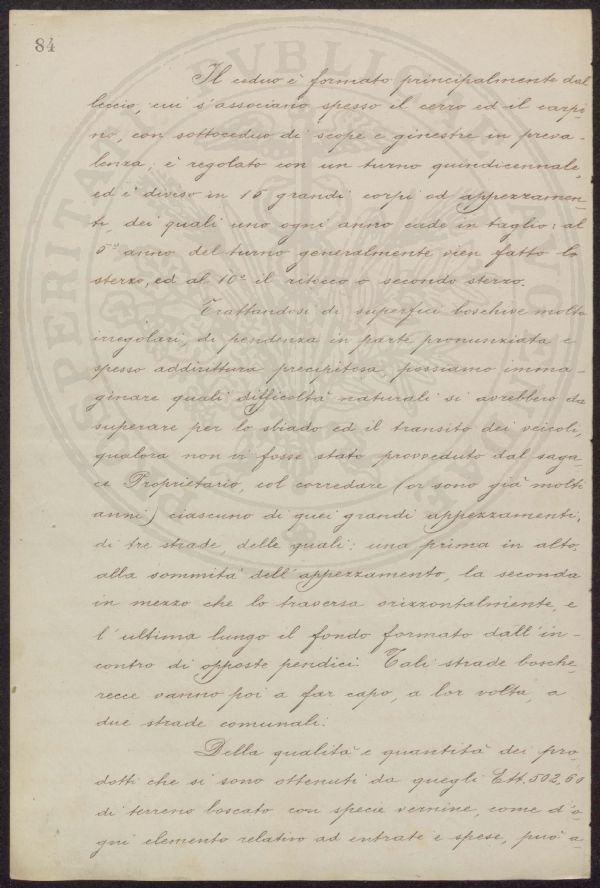 84
Il ceduo è formato principalmente dal
leccio, cui s'associano spesso il cerro ed il carpi-
no, con sottoceduo di scope e ginestre in preva-
lenza; è regolato con un turno quindicennale,
ed è diviso in 15 grandi corpi od appezzamen-
ti, dei quali uno ogni anno cade in taglio: al
5º anno del turno generalmente vien fatto lo
sterzo, ed al 10º il ritocco o secondo sterzo.
Trattandosi di superfici boschive molto
irregolari, di pendenza in parte pronunziata e
spesso addirittura precipitosa, possiamo imma-
ginare quali difficoltà naturali si avrebbero da
superare per lo sbiado ed il transito dei veicoli,
qualora non vi fosse stato provveduto dal saga-
ce Proprietario, col corredare (or sono già molti
anni) ciascuno di quei grandi appezzamenti,
di tre strade, delle quali: una prima in alto,
alla sommità dell'appezzamento, la seconda
in mezzo che lo traversa orizzontalmente, e
l'ultima lungo il fondo formato dall'in-
contro di opposte pendici. Tali strade bosche-
recce vanno poi a far capo, a lor volta, a
due strade comunali.
Della qualità e quantità dei pro-
dotti che si sono ottenuti da quegli Ett. 502,60
di terreno boscato con specie vernine, come d'o-
gni elemento relativo ad entrate e spese, può a-
PROSPERITAS PUBLICA